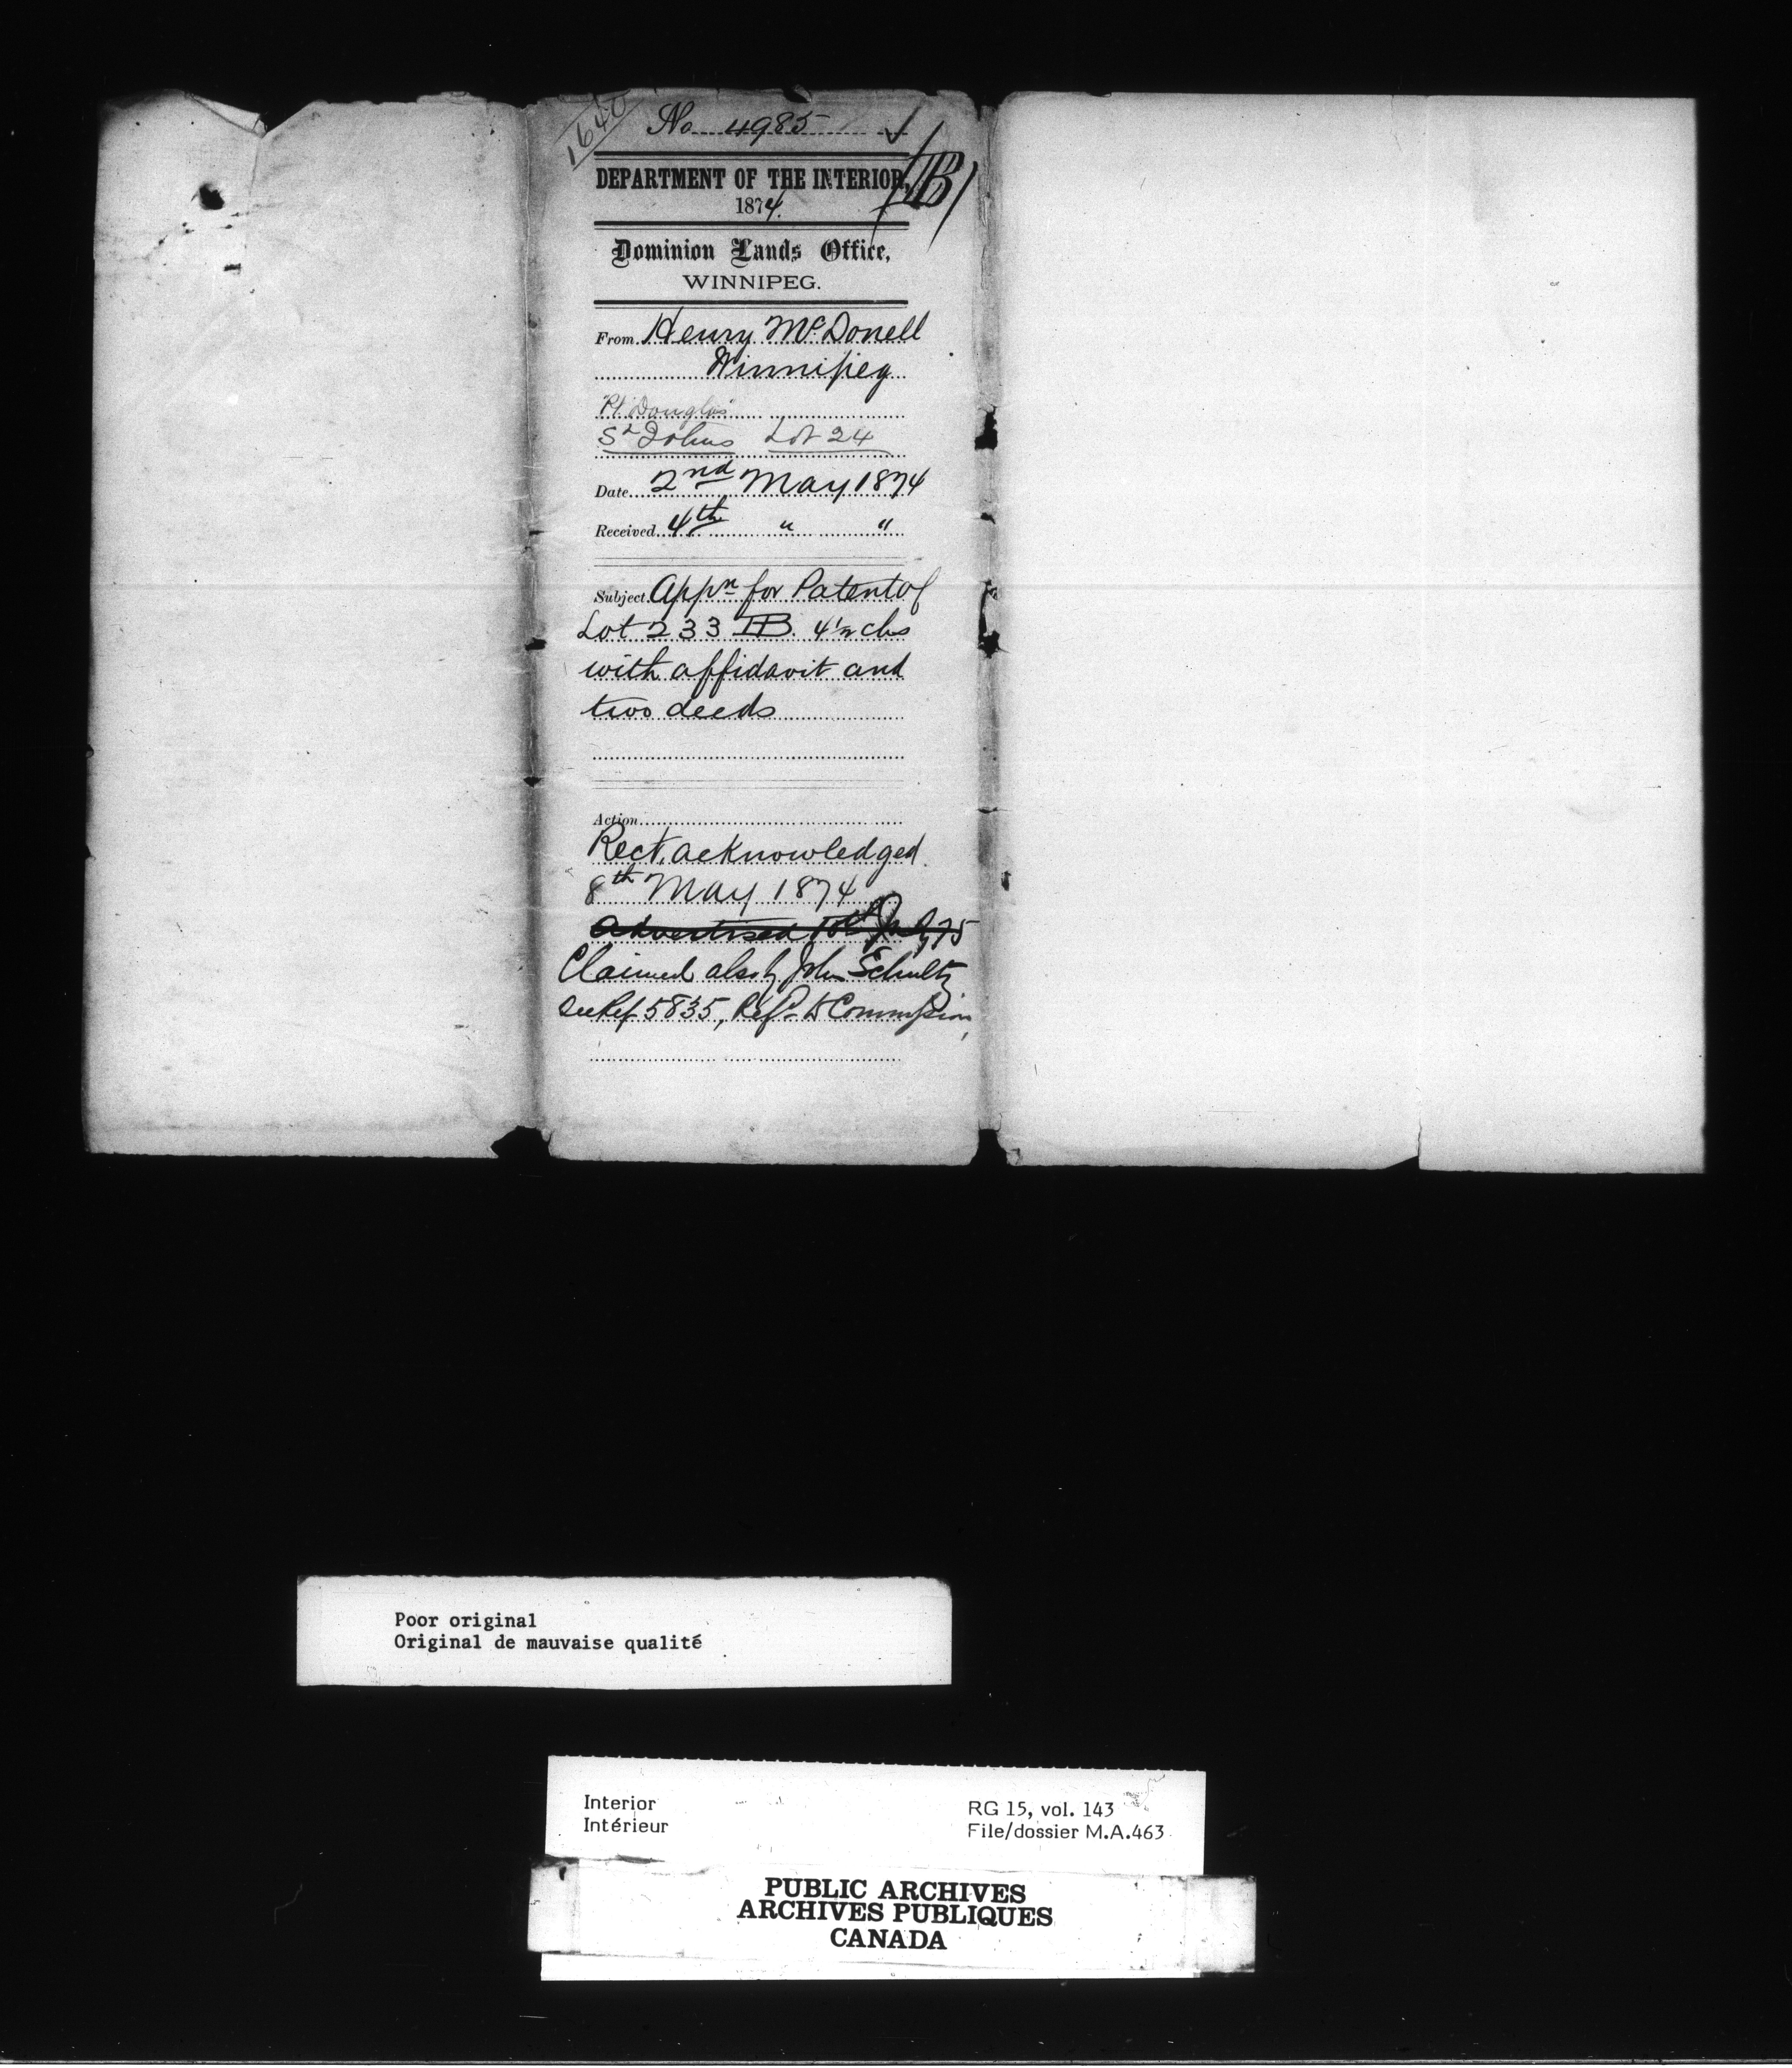 1640
No 4985
DEPARTMENT OF THE INTERIOR,
1874.
Dominion Lands Office,
WINNIPEG.
From Henry McDonell
Winnipeg
Pt. Douglas
St Johns Lot 24
Date 2nd May 1874
Received 4th " "
Subject Appn for Patent of
Lot 233 HB. 4½ chs
with affidavit and
two deeds
Action
Rect. acknowledged
8th May 1874
Advertised July 75
Claimed also by John Schultz
see Ref 5835, Refd to Commission
Poor original
Original de mauvaise qualité
Interior
Intérieur
RG 15, vol. 143
File/dossier M.A.463
PUBLIC ARCHIVES
ARCHIVES PUBLIQUES
CANADA